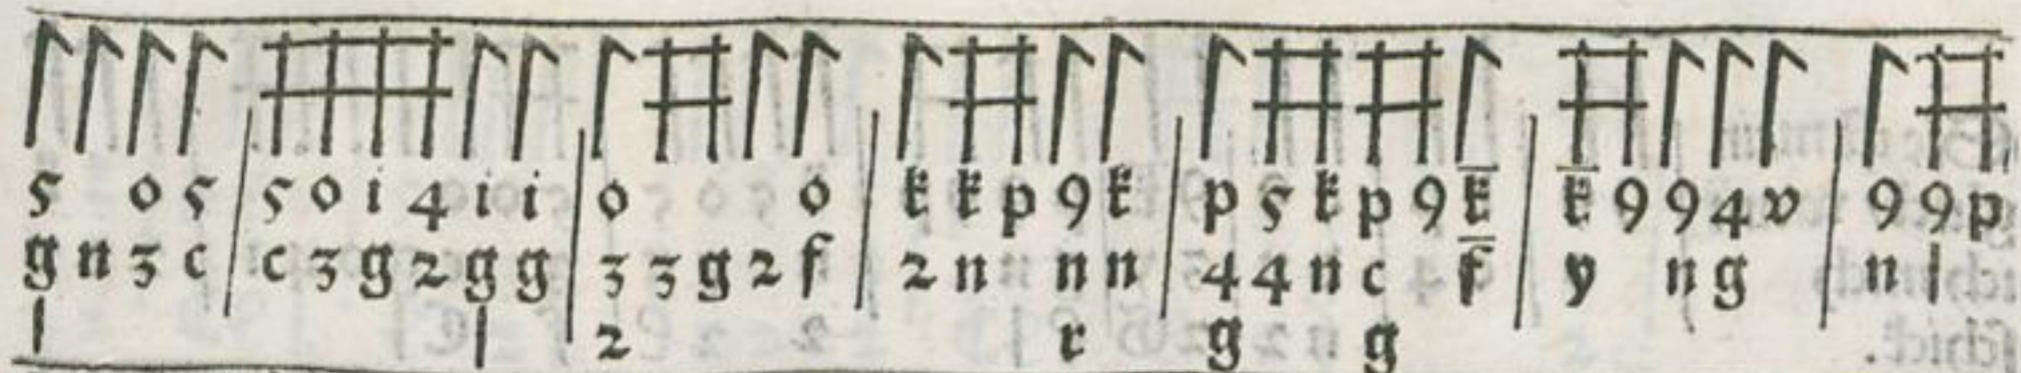 5 o 5 | 5 o i 4 i i | o o | k k p 9 k | p 5 k p 9 k̄ | k̄ 9 9 4 v | 9 9 p
g n z c | c z g 2 g g | z z g 2 f | 2 n n n | 4 4 n c f̄ | y n g | n |
| | 2 r g g